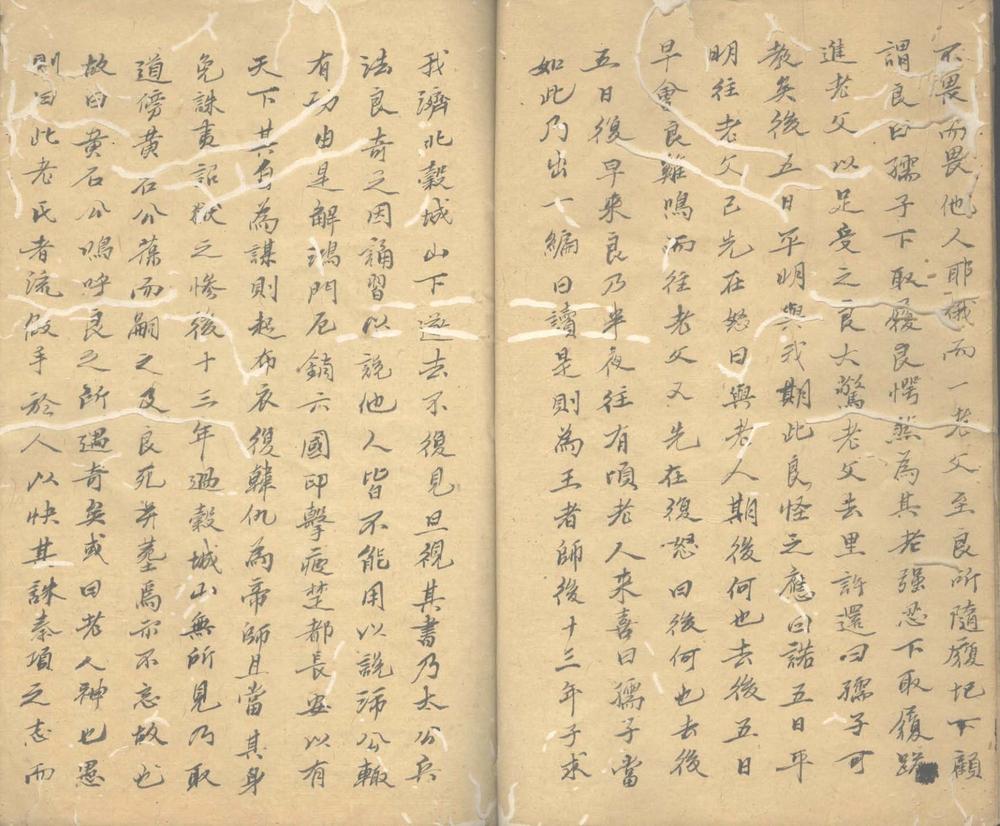 不畏而畏他人耶俄而一老父至良所隨履圯下顧
謂良曰孺子下取履良愕然為其老强忍下取履跪
進老父以足受之良大驚老父去里許還曰孺子可
教矣後五日平明與我期此良怪之應曰諾五日平
明往老父已先在怒曰與老人期後何也去後五日
早會良雞鳴而往老父又先在復怒曰後何也去後
五日復早来良乃半夜往有頃老人来喜曰孺子當
如此乃出一編曰讀是則為王者師後十三年子求
我濟北穀城山下遂去不復見旦視其書乃太公兵
法良奇之因誦習以說他人皆不能用以說沛公輙
有功由是解鴻門厄銷六國印擊疲楚都長安以有
天下其自為謀則起布衣復韓仇為帝師且當其身
免誅夷詔獄之慘後十三年過穀城山無所見乃取
道傍黄石公葆而嗣之及良死并塟焉示不忘故也
故曰黄石公嗚呼良之所遇奇矣或曰老人神也愚
則曰此老氏者流假手於人以快其誅秦項之志而